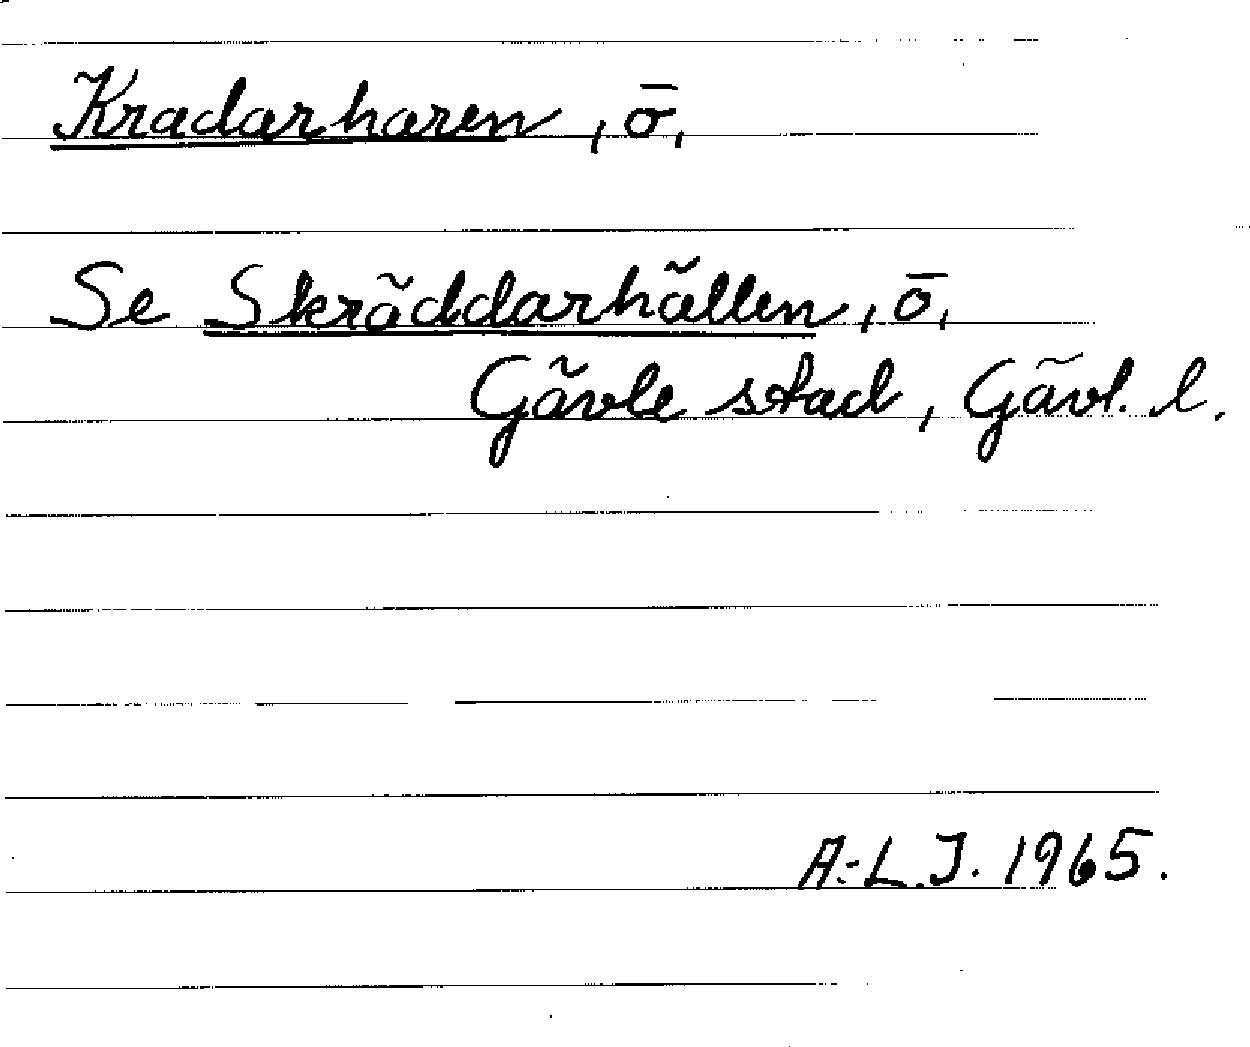 Kradarharen, ö,
Se Skräddarhällen, ö,
Gävle stad, Gävl. l.
A:-L.J. 1965.